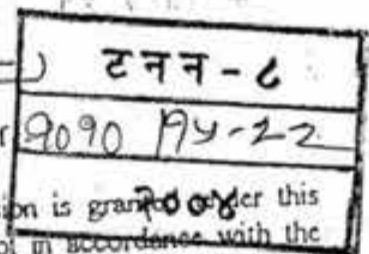 टनन - ८
१०१० /१५-२२
२००४
is granted under this
in accordance with the